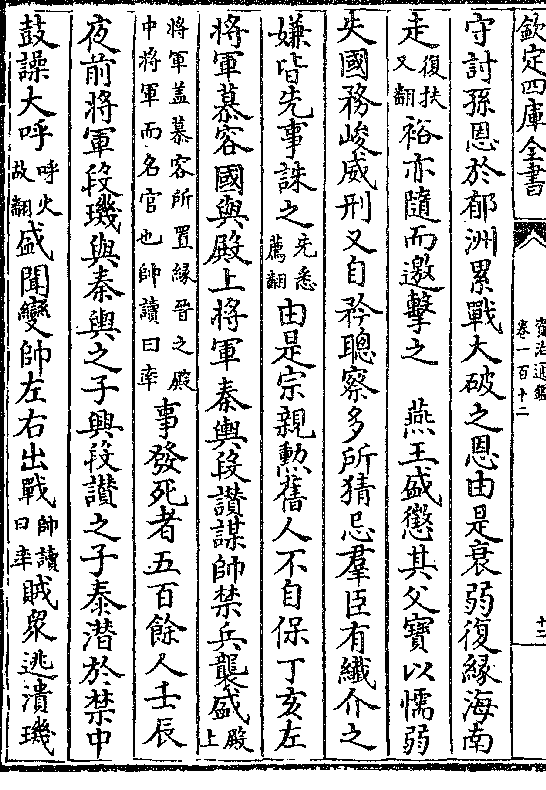 欽定四庫全書
資治通鑑
卷一百十二
十二
守討孫恩於郁洲累戰大破之恩由是衰弱復緣海南
走復扶又翻裕亦隨而邀擊之　燕王盛懲其父寶以懦弱
失國務峻威刑又自矜聰察多所猜忌羣臣有纖介之
嫌皆先事誅之先悉薦翻由是宗親勲舊人不自保丁亥左
將軍慕容國與殿上將軍秦輿段讃謀帥禁兵襲盛殿上
將軍盖慕容所置緣晉之殿中將軍而名官也帥讀曰率事發死者五百餘人壬辰
夜前將軍段璣與秦輿之子興段讃之子泰潜於禁中
鼓譟大呼呼火故翻盛聞變帥左右出戰帥讀曰率賊衆逃潰璣